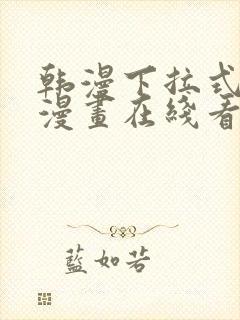 韩漫下拉式
漫畫在綫看
藍如若